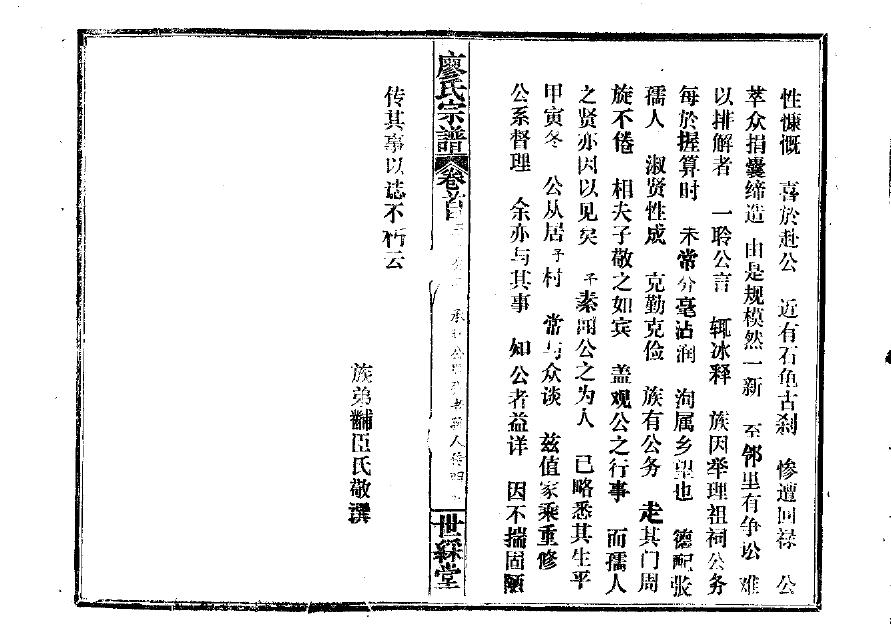 性慷慨 喜於赴公 近有石鱼古刹 惨遭回禄 公
萃众捐囊缔造 由是规模然一新 至邻里有争讼 难
以排解者 一聆公言 辄冰释 族因举理祖祠公务
每於握算时 未常分毫沾润 洵属乡望也 德配张
孺人 淑贤性成 克勤克俭 族有公务 走其门周
旋不倦 相夫子敬之如宾 盖观公之行事 而孺人
之贤亦因以见矣 予素闻公之为人 已略悉其生平
甲寅冬 公从居予村 常与众谈 兹值家乘重修
公系督理 余亦与其事 知公者益详 因不揣固陋
传其事以志不朽云
族弟黼臣氏敬撰
廖氏宗譜 卷首
世綵堂